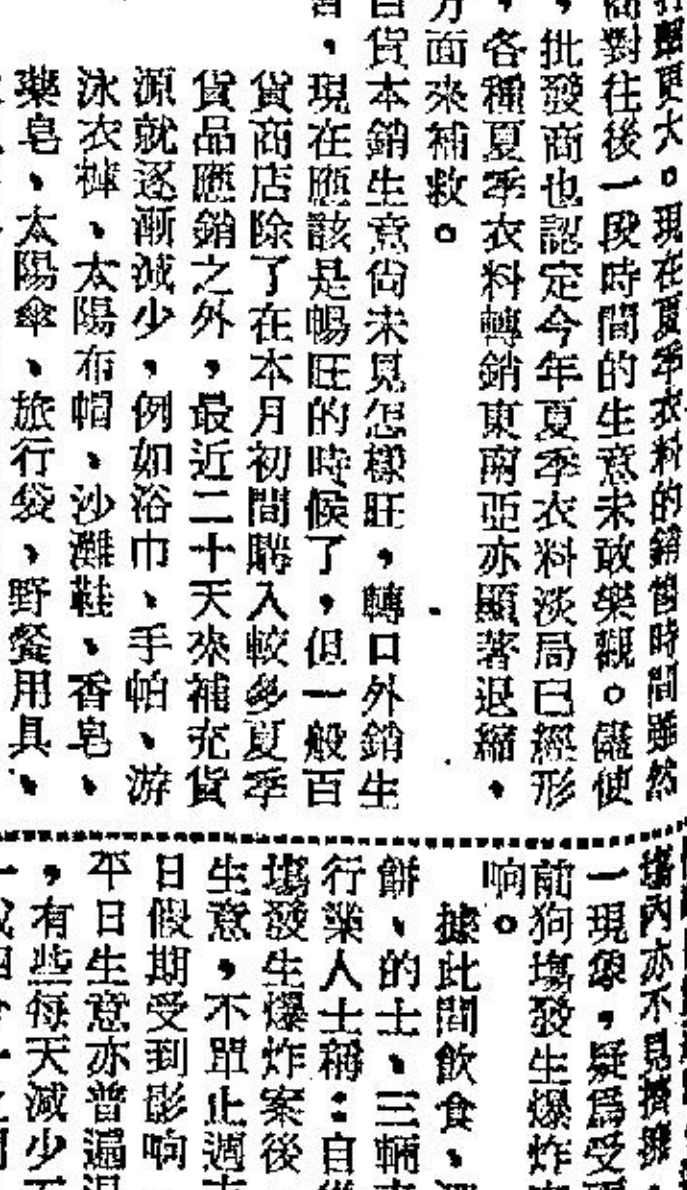 更大。現在夏季衣料的銷售時間雖然
對往後一段時間的生意未敢樂觀。儘使
，批發商也認定今年夏季衣料淡局已經形
，各種夏季衣料轉銷東南亞亦顯著退縮，
方面來補救。
百貨本銷生意尚未見怎樣旺，轉口外銷生
，現在應該是暢旺的時候了，但一般百
貨商店除了在本月初間購入較多夏季
貨品應銷之外，最近二十天來補充貨
源就逐漸減少，例如浴巾、手帕、游
泳衣褲、太陽布帽、沙灘鞋、香皂、
藥皂、太陽傘、旅行袋、野餐用具、
塲內亦不見擠擁，
一現象，疑爲受
前狗塲發生爆炸
响。
據此間飲食、
餅、的士、三輛
行業人士稱：自
塲發生爆炸案後
生意，不單止週
日假期受到影响
平日生意亦普遍
，有些每天減少